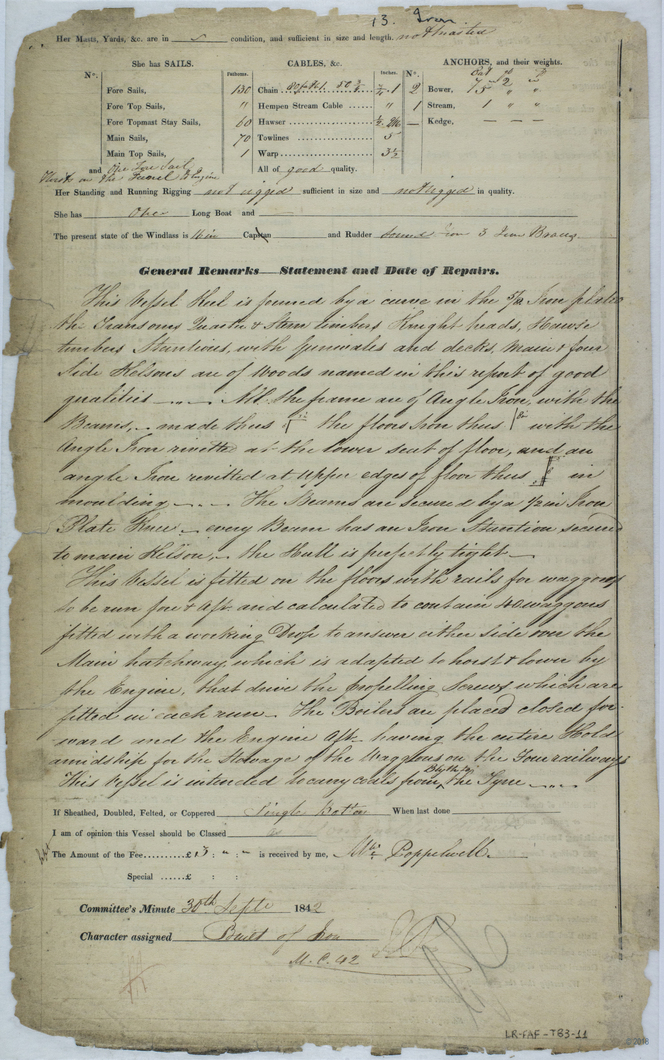 13. Iron
Her Masts, Yards, &c. are in condition, and sufficient in size and length. not masted
She has SAILS.
CABLES, &c.
ANCHORS, and their weights.
N°.
Fathoms.
Inches.
N°.
Fore Sails,
Chain 130 1 2 Bower,
Fore Top Sails,
Hempen Stream Cable " " 1 Stream, 1 " "
Fore Topmast Stay Sails,
Hawser 60 — Kedge, — — —
Main Sails,
Towlines 70 5
Main Top Sails,
Warp 1 3½
and
All of good quality.
Her Standing and Running Rigging not rigged sufficient in size and not rigged in quality.
She has One Long Boat and
The present state of the Windlass is Capstan and Rudder Sound Iron 3 Iron Braces
General Remarks—Statement and Date of Repairs.
This Vessel Keel is formed by a curve in the 5/8 Iron plates
the Transoms Quarter & Stern timbers Knight heads, Hawse
timbers Stantions, with Gunwales and decks, main & four
Side Kelsons are of Woods named in this report of good
qualities — All the frame are of Angle Iron, with the
Beams, — made thus the floors Iron thus with the
Angle Iron rivetted at the lower seat of floor, and an
angle Iron rivitted at Upper edges of floor thus in
moulding — The Beams are secured by a 1/2 in Iron
Plate Knee — every Beam has an Iron Stantion secured
to main Kelson, — the Hull is perfectly tight —
This Vessel is fitted on the floors with rails for waggons
to be run fore & aft and calculated to contain 40 waggons
fitted with a working Drop to answer either Side over the
Main hatchway which is adapted to hoist & lower by
the Engine, that drive the propelling Screws which are
fitted in each run — The Boilers are placed closed for-
ward and the Engine Aft. having the entire Hold
amidship for the Stowage of the Waggons on the Four railways
This Vessel is intended to carry coals from Blyth to the Tyne —
If Sheathed, Doubled, Felted, or Coppered Single Bottom When last done
I am of opinion this Vessel should be Classed
The Amount of the Fee £ 5 : " : " is received by me, Wm Poppelwell.
Special £ : :
Committee's Minute 30th Septr 1842
Character assigned Built of Iron
M.C. 42
LR-FAF-TB3-11